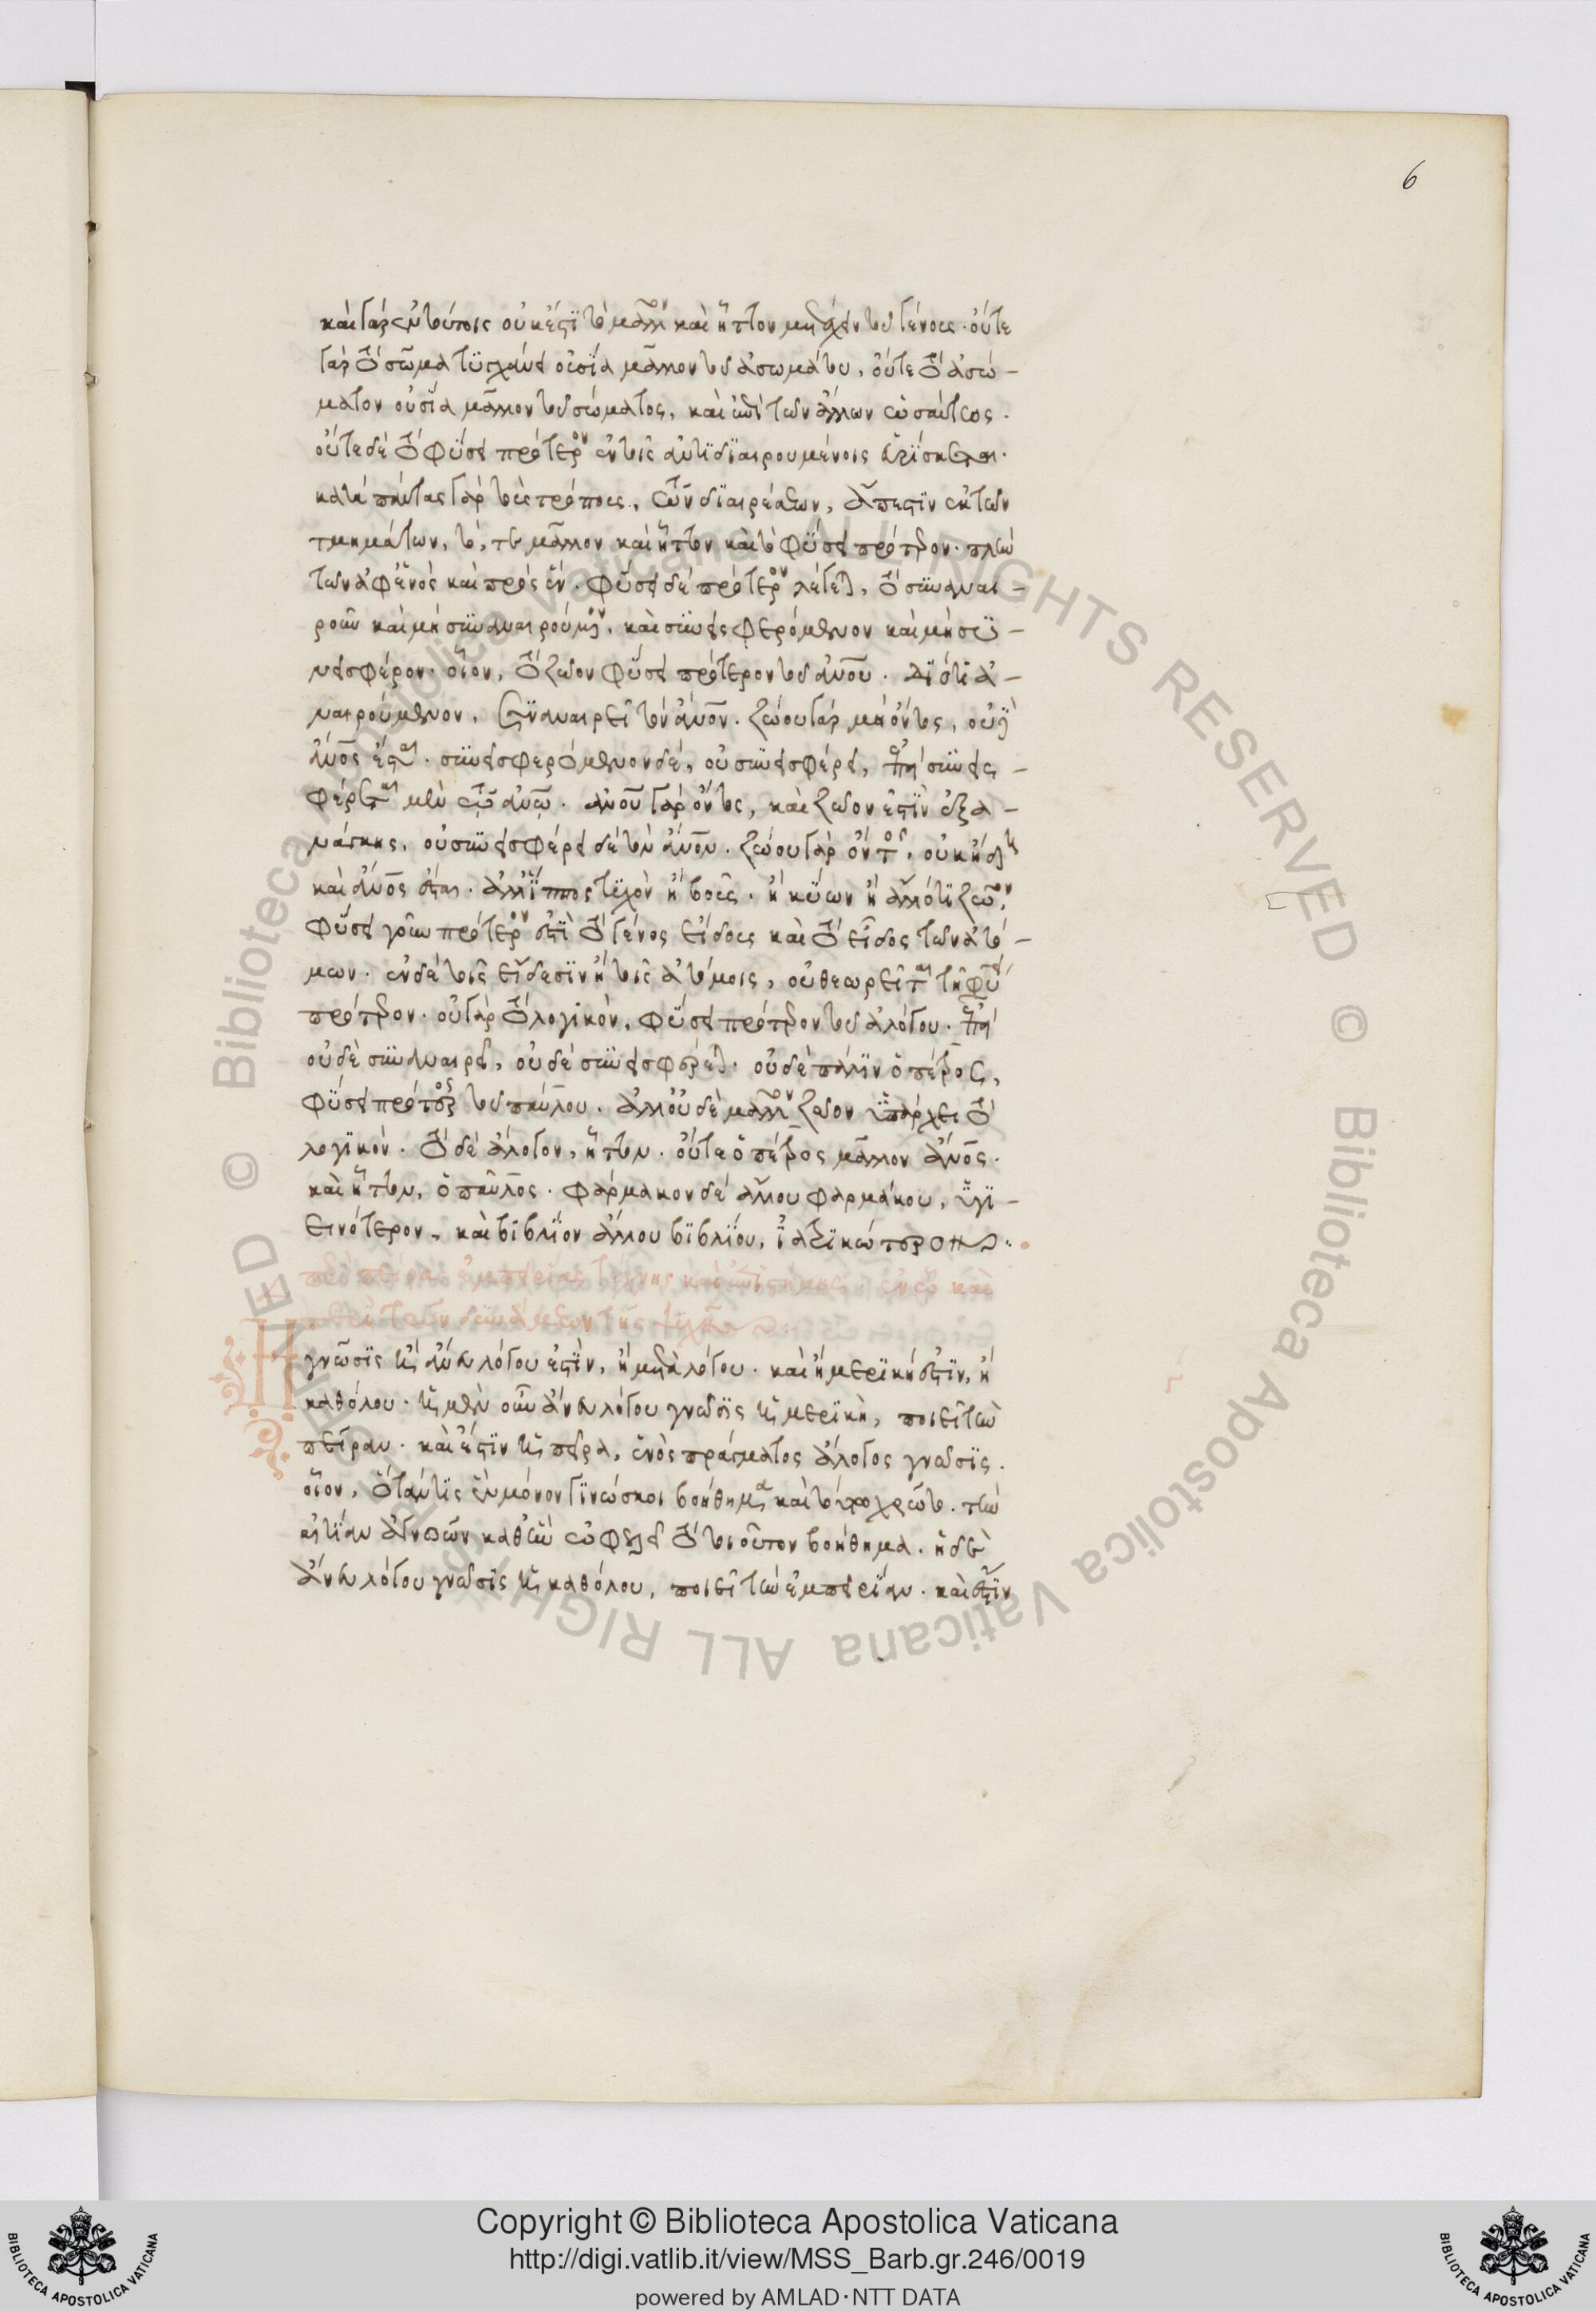 6
καὶ γὰρ ἐν τούτοις οὐκ ἔστι τὸ μᾶλλον καὶ ἧττον μετέχειν τοῦ γένους· οὔτε
γὰρ τὸ σῶμα τυγχάνει οὐσία μᾶλλον τοῦ ἀσωμάτου, οὔτε τὸ ἀσώ-
ματον οὐσία μᾶλλον τοῦ σώματος, καὶ ἐπὶ τῶν ἄλλων ὡσαύτως.
οὔτε δὲ τὸ φύσει πρότερον ἐν τοῖς ἀντιδιαιρουμένοις εὑρίσκεται.
κατὰ πάντας γὰρ τοὺς τρόπους τῶν διαιρέσεων, ἄπεστιν ἐκ τῶν
τμημάτων, τό, τε μᾶλλον καὶ ἧττον καὶ τὸ φύσει πρότερον· πλὴν
τῶν ἀφ' ἑνὸς καὶ πρὸς ἕν. φύσει δὲ πρότερον λέγεται, τὸ συναναι-
ροῦν καὶ μὴ συναναιρούμενον, καὶ συνεισφερόμενον καὶ μὴ συ-
νεισφέρον· οἷον, τὸ ζῶον φύσει πρότερον τοῦ ἀνου. διότι ἀ-
ναιρούμενον, συναναιρεῖ τὸν ἄνον. ζώου γὰρ μὴ ὄντος, οὐδὲ
ἄνος ἔσται. συνεισφερόμενον δὲ, οὐ συνεισφέρει, ἐπεὶ συνεισ-
φέρεται μὲν τῷ ἀνω. ἀνου γὰρ ὄντος, καὶ ζῶον ἐστὶν ἐξ α-
νάγκης. οὐ συνεισφέρει δὲ τὸν ἄνον. ζώου γὰρ ὄντος, οὐκ ἤδη
καὶ ἄνος ἔσται. ἀλλ' ἵππος τυχὸν ἢ βοῦς. ἢ κύων ἢ ἄλλό τι ζῶον,
φύσει γοῦν πρότερον ἐστὶ τὸ γένος εἴδους καὶ τὸ εἶδος τῶν ἀτό-
μων. ἐν δὲ τοῖς εἴδεσιν ἢ τοῖς ἀτόμοις, οὐ θεωρεῖται τὸ φύσει
πρότερον. οὐ γὰρ τὸ λογικὸν, φύσει πρότερον τοῦ ἀλόγου. ἐπεὶ
οὐδὲ συναναιρεῖ, οὐδὲ συνεισφέρεται. οὐδὲ πάλιν ὁ πέτρος,
φύσει πρότερος τοῦ παύλου. ἀλλ' οὐδὲ μᾶλλον ζῶον ὑπάρχει τὸ
λογικὸν. τὸ δὲ ἄλογον, ἧττον. οὔτε ὁ πέτρος μᾶλλον ἄνος.
καὶ ἧττον, ὁ παῦλος. φάρμακον δὲ ἄλλου φαρμάκου, ὑγι-
εινότερον, καὶ βιβλίον ἄλλου βιβλίου, ἰατρικώτερον
περὶ πείρας ἐμπειρίας τέχνης καὶ ἐπιστήμης, ἐν ᾧ καὶ
περὶ τῶν δυνάμεων τῆς ψυχῆς
Ἡ γνῶσις ἢ ἄνευ λόγου ἐστὶν, ἢ μετὰ λόγου. καὶ ἢ μερική ἐστιν, ἢ
καθόλου. ἡ μὲν οὖν ἄνευ λόγου γνῶσις ἡ μερικὴ, ποιεῖ τὴν
πεῖραν. καὶ ἔστιν ἡ πεῖρα, ἑνὸς πράγματος ἄλογος γνῶσις.
οἷον, ὅταν τις ἓν μόνον γινώσκοι βοήθημα καὶ τούτῳ χρῶτο. τὴν
αἰτίαν ἀγνοῶν καθ' ἣν ὠφελεῖ τὸ τοιοῦτον βοήθημα. ἡ δὲ
ἄνευ λόγου γνῶσις ἡ καθόλου, ποιεῖ τὴν ἐμπειρίαν. καὶ ἔστιν
Copyright © Biblioteca Apostolica Vaticana
http://digi.vatlib.it/view/MSS_Barb.gr.246/0019
powered by AMLAD·NTT DATA